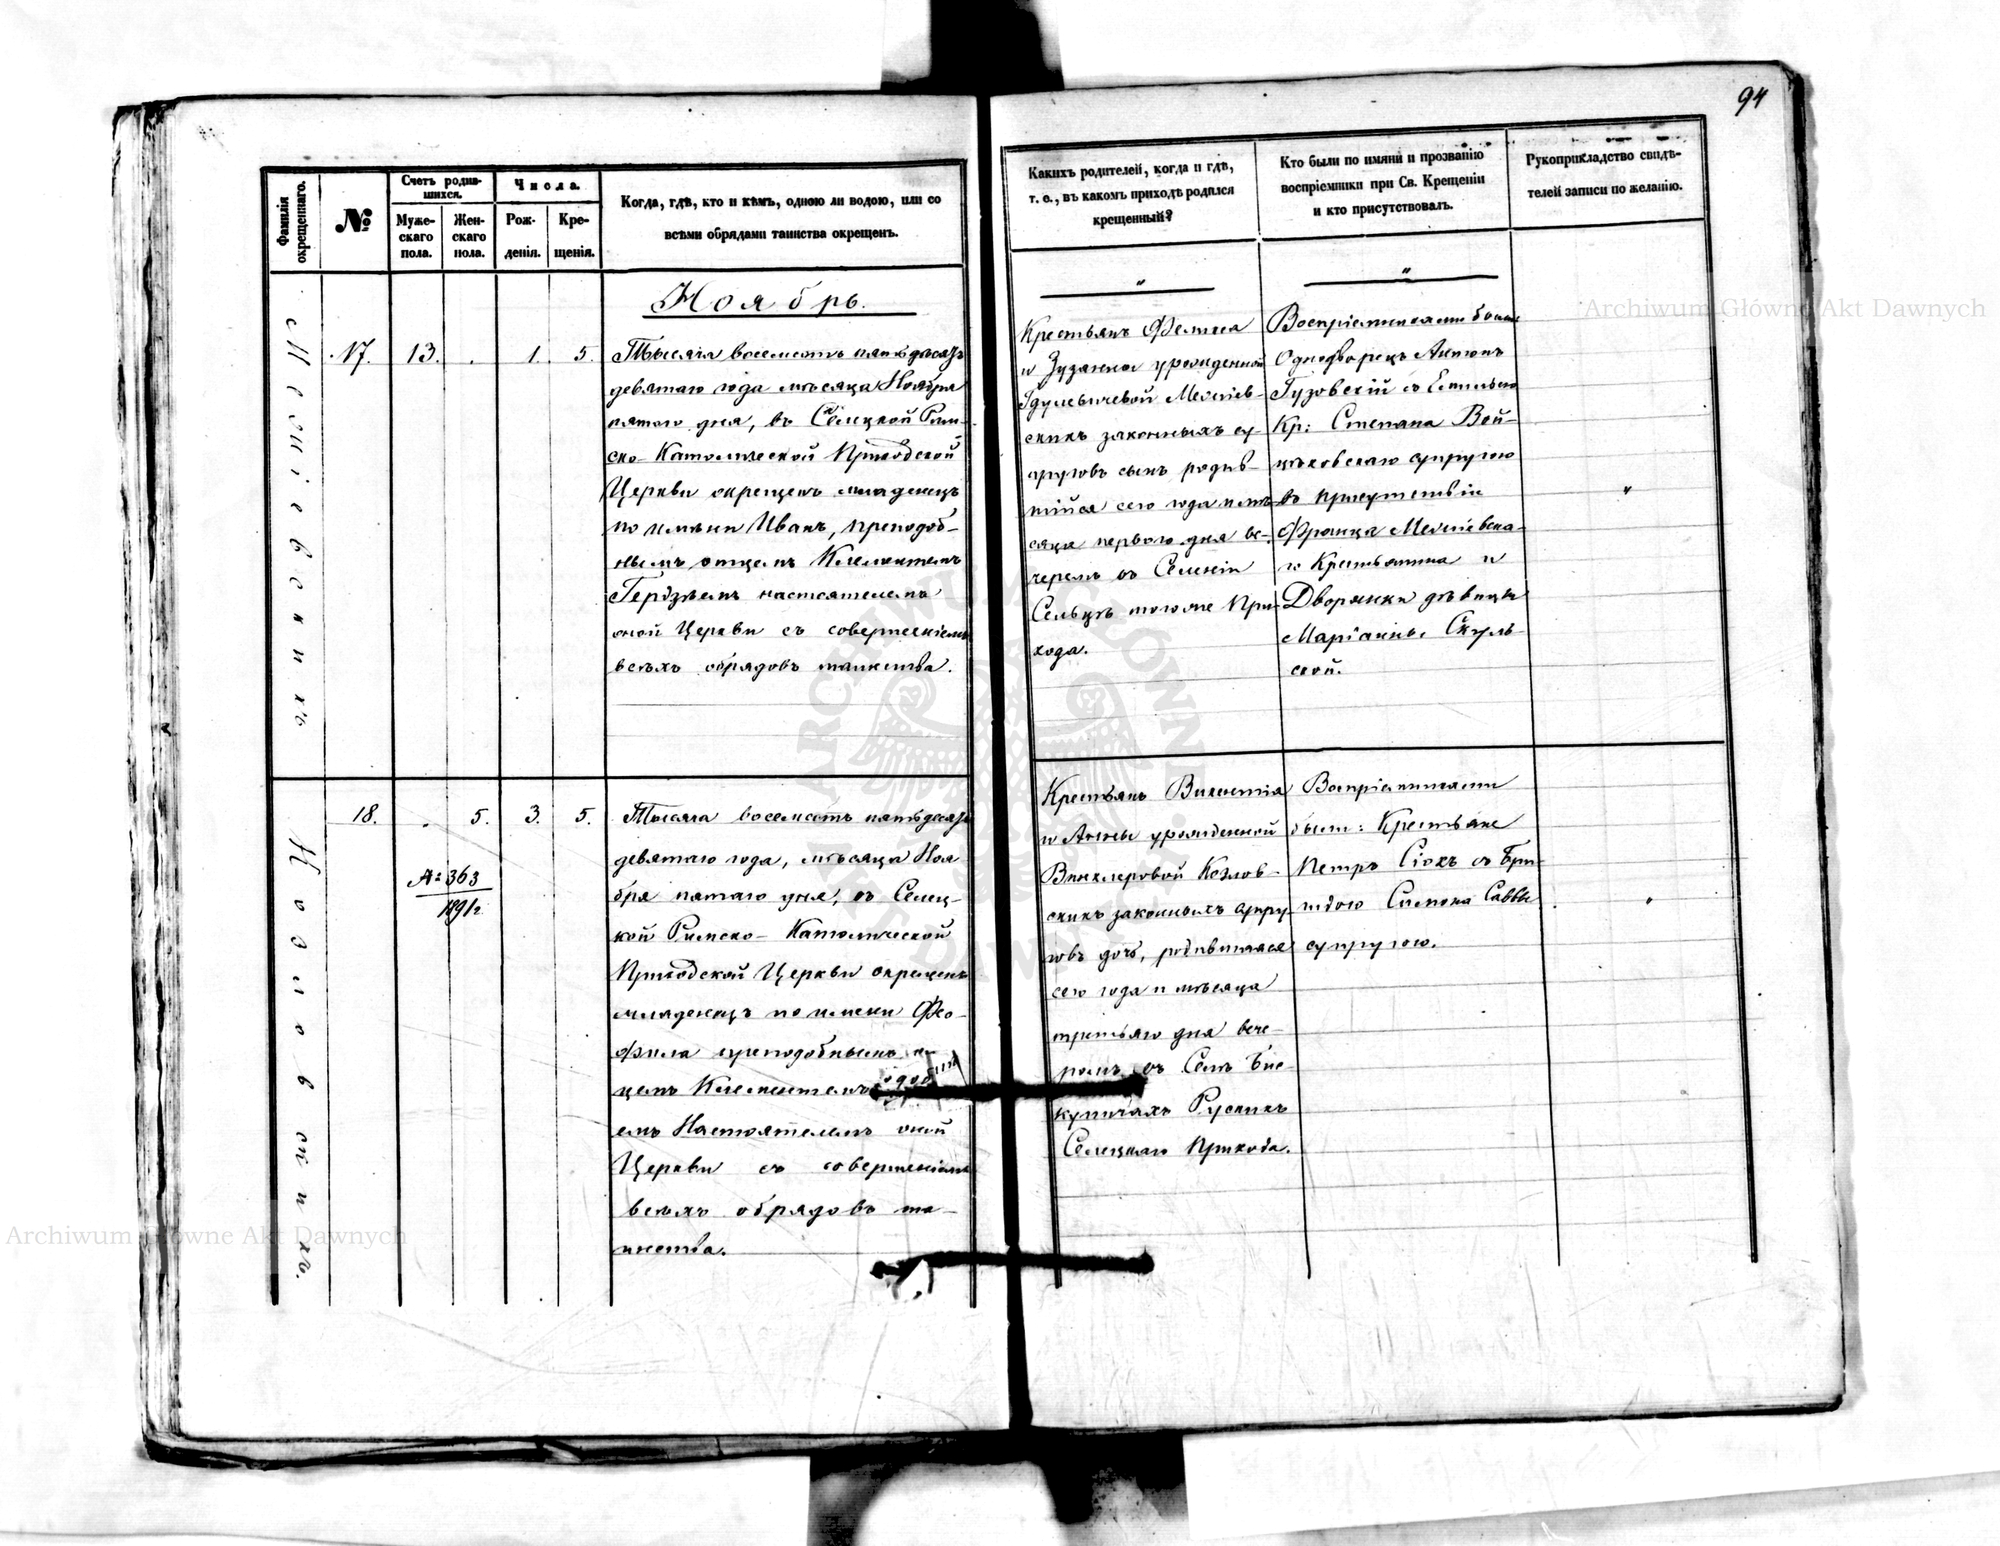 94
Фамилія окрещеннаго.
№
Счетъ родив-
шихся.
Муже-
скаго
пола.
Жен-
скаго
пола.
Числа.
Рож-
денія.
Кре-
щенія.
Когда, гдѣ, кто и кѣмъ, одною ли водою, или со
всѣми обрядами таинства окрещенъ.
Какихъ родителей, когда и гдѣ,
т. е., въ какомъ приходѣ родился
крещенный?
Кто были по имяни и прозванію
воспріемники при Св. Крещеніи
и кто присутствовалъ.
Рукоприкладство свидѣ-
телей записи по желанію.
Ноябрь.
17. 13. . 1. 5.
Тысяча восемсотъ пятьдесятъ
девятаго года мѣсяца Ноября
пятаго дня, въ Селецкой Рим-
ско-Католической Приходской
Церкви окрещенъ младенецъ
по имяни Иванъ, преподоб-
нымъ отцемъ Клементемъ
настоятелемъ
оной Церкви съ совершеніемъ
всѣхъ обрядовъ таинства.
Крестьянъ Феликса
и Зузанны урожденной
скихъ законныхъ су-
пруговъ сынъ родив-
шійся сего года и мѣ-
сяца перваго дня ве-
черомъ въ Селеніи
Сельцѣ тогоже При-
хода.
Воспріемниками были
Однодворецъ Антонъ
Гузовскій съ Емилею
Кр: Степана Вой-
цѣховскаго супругою
въ присутствіи
Франца
Крестьянина и
Дворянки дѣвицы
Маріанны Скуль-
ской.
Козловскихъ.
18. . 5. 3. 5.
№ 363
1891г
Тысяча восемсотъ пятьдесятъ
девятаго года, мѣсяца Ноя
бря пятаго дня, въ Селец-
кой Римско-Католической
Приходской Церкви окрещенъ
младенецъ по имени Фео-
фила преподобнымъ от-
цемъ Клементемъ
емъ Настоятелемъ оной
Церкви съ совершеніемъ
всѣхъ обрядовъ та-
инства.
Крестьянъ Викентія
и Анны урожденной
Винклеровой Козлов-
скихъ законныхъ супру
говъ дочь, родившаяся
сего года и мѣсяца
третьяго дня вече-
ромъ въ Селѣ Бис-
купичахъ Рускихъ
Селецкаго Прихода.
Воспріемниками
были: Крестьяне
Петръ Сіохъ съ Бри-
гидою Симона Саввы
супругою.
Archiwum Główne Akt Dawnych
Archiwum Główne Akt Dawnych
ARCHIWUM GŁÓWNE AKT DAWNYCH